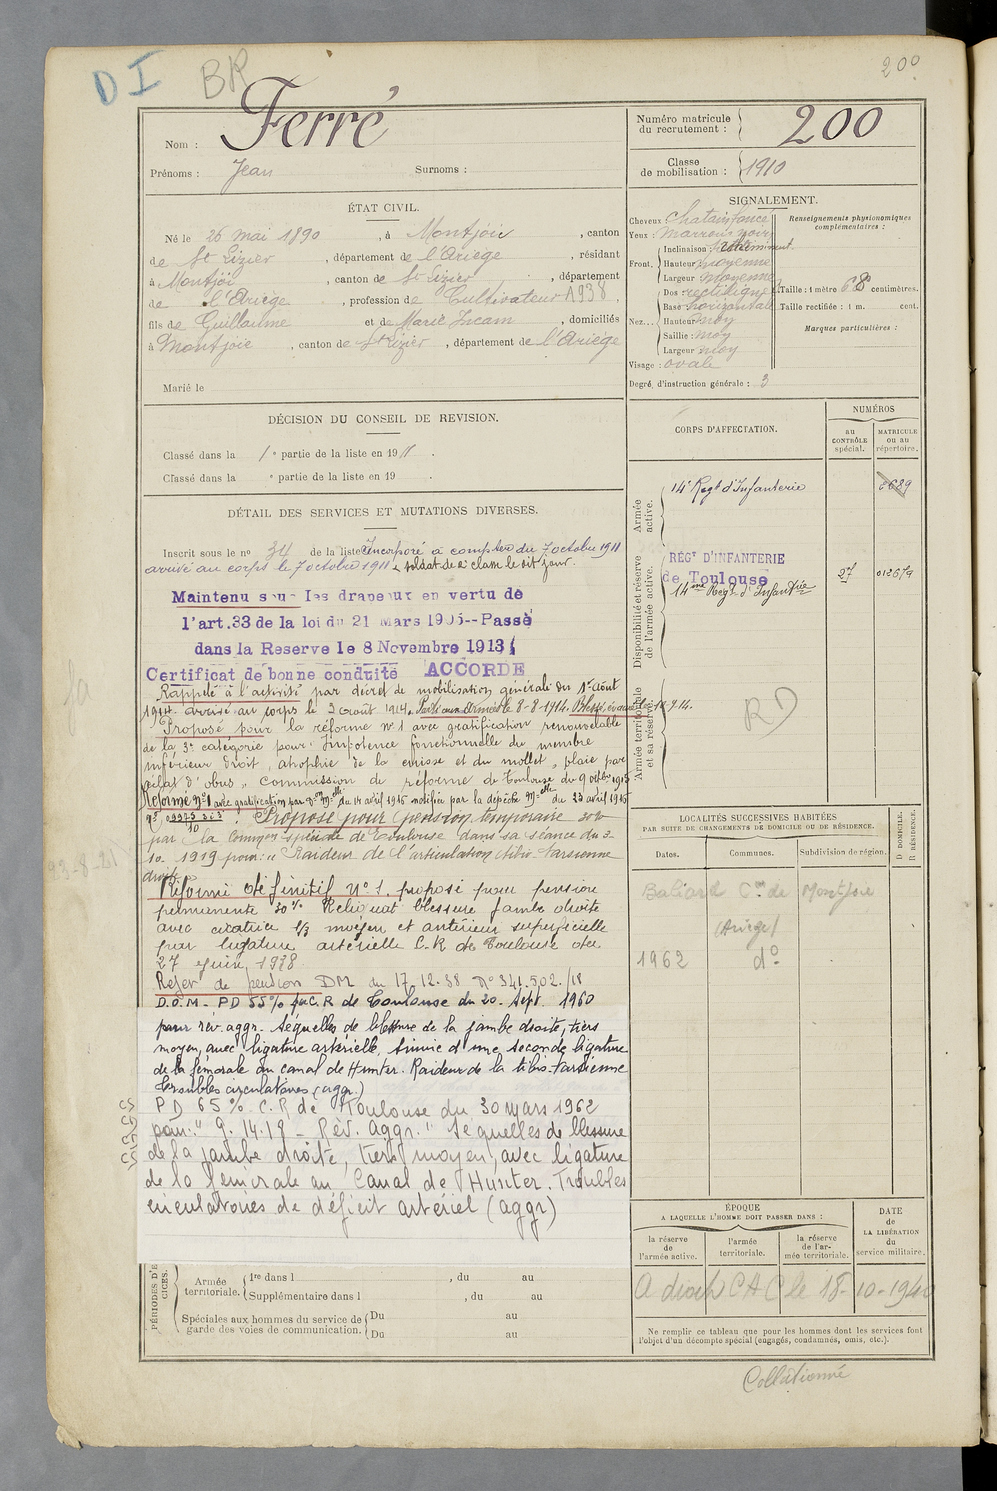 D I BR
200
Nom : Ferré
Prénoms : Jean Surnoms :
Numéro matricule du recrutement : 200
Classe de mobilisation : 1910
ÉTAT CIVIL.
Né le 26 mai 1890, à Montjoie, canton
de St Lizier, département de l'Ariège, résidant
à Montjoie, canton de St Lizier, département
de l'Ariège, profession de Cultivateur 1938,
fils de Guillaume et de Marie Incam, domiciliés
à Montjoie, canton de St Lizier, département de l'Ariège
Marié le
SIGNALEMENT.
Cheveux : Chatain foncé
Yeux : Marron noir
Front. Inclinaison :
Hauteur moyenne
Largeur moyenne
Nez... Dos : rectiligne
Base horizontale
Hauteur moy
Saillie : moy
Largeur moy
Visage : ovale
Degré d'instruction générale : 3
Renseignements physionomiques complémentaires :
Taille : 1 mètre 68 centimètres.
Taille rectifiée : 1 m. cent.
Marques particulières :
DÉCISION DU CONSEIL DE REVISION.
Classé dans la 1e partie de la liste en 1911.
Classé dans la e partie de la liste en 19 .
DÉTAIL DES SERVICES ET MUTATIONS DIVERSES.
Inscrit sous le no 34 de la liste Incorporé à compter du 7 octobre 1911
arrivé au corps le 7 octobre 1911 & soldat de 2e classe le dit jour.
Maintenu sous les drapeaux en vertu de
l'art.33 de la loi du 21 Mars 1905--Passé
dans la Reserve le 8 Novembre 1913
Certificat de bonne conduite ACCORDE
Rappelé à l'activité par décret de mobilisation générale du 1er Août
1914. arrivé au corps le 3 août 1914. Parti aux armées le 8-8-1914. Blessé, évacué le 9.14.
Proposé pour la réforme no 1 avec gratification renouvelable
de la 3e catégorie pour : Impotence fonctionnelle du membre
inférieur droit, atrophie de la cuisse et du mollet, plaie par
éclat d'obus, Commission de réforme de Toulouse du 9 octbre 1915
Réformé No 1 avec gratification par Don Melle du 14 avril 1915 notifiée par la dépêche Melle du 23 avril 1915
Proposé pour pension temporaire 30%
par la Common spéciale de Toulouse dans sa séance du 3-
10 1919 pour : "Raideur de l'articulation tibio-tarsienne
droite"
Réformé définitif No 1. proposé pour pension
permanente 30%. Reliquat blessure jambe droite
avec cicatrice 1/3 moyen et antérieur superficielle
pour ligature artérielle C.R de Toulouse du
27 Juin 1938
Rejet de pension DM du 17.12.38 No 341.502./18
D.O.M. PD 55% par C.R de Toulouse du 20. Sept. 1960
pour rév. aggr. Séquelles de blessure de la jambe droite, tiers
moyen, avec ligature artérielle, suivie d'une seconde ligature
de la fémorale au canal de Hunter. Raideur de la tibio-tarsienne
troubles circulatoires (aggr.)
PD 65% C.R de Toulouse du 30 mars 1962
pour : " G. 14.18 - Rév. Aggr. " Sequelles de blessure
de la jambe droite, tiers moyen, avec ligature
de la fémorale au Canal de Hunter. Troubles
circulatoires de déficit artériel (aggr)
CORPS D'AFFECTATION.
NUMÉROS
au CONTRÔLE spécial.
MATRICULE ou au répertoire.
Armée active.
14e Regt d'Infanterie
Disponibilité et réserve de l'armée active.
RÉGT D'INFANTERIE
de Toulouse
14me Régt d'Infantrie
27 012679
Armée territoriale et sa réserve.
RD
LOCALITÉS SUCCESSIVES HABITÉES
PAR SUITE DE CHANGEMENTS DE DOMICILE OU DE RÉSIDENCE.
Dates. Communes. Subdivision de région. D DOMICILE. R RÉSIDENCE.
Baliard Cne de Montjoie
(Ariège)
1962 do
ÉPOQUE
A LAQUELLE L'HOMME DOIT PASSER DANS :
la réserve de l'armée active.
l'armée territoriale.
la réserve de l'armée territoriale.
DATE de LA LIBÉRATION du service militaire.
A droit CAC le 18-10-1940
Ne remplir ce tableau que pour les hommes dont les services font
l'objet d'un décompte spécial (engagés, condamnés, omis, etc.).
Armée territoriale. 1re dans l , du au
Supplémentaire dans l , du au
Spéciales aux hommes du service de garde des voies de communication. Du au
Du au
Collationné